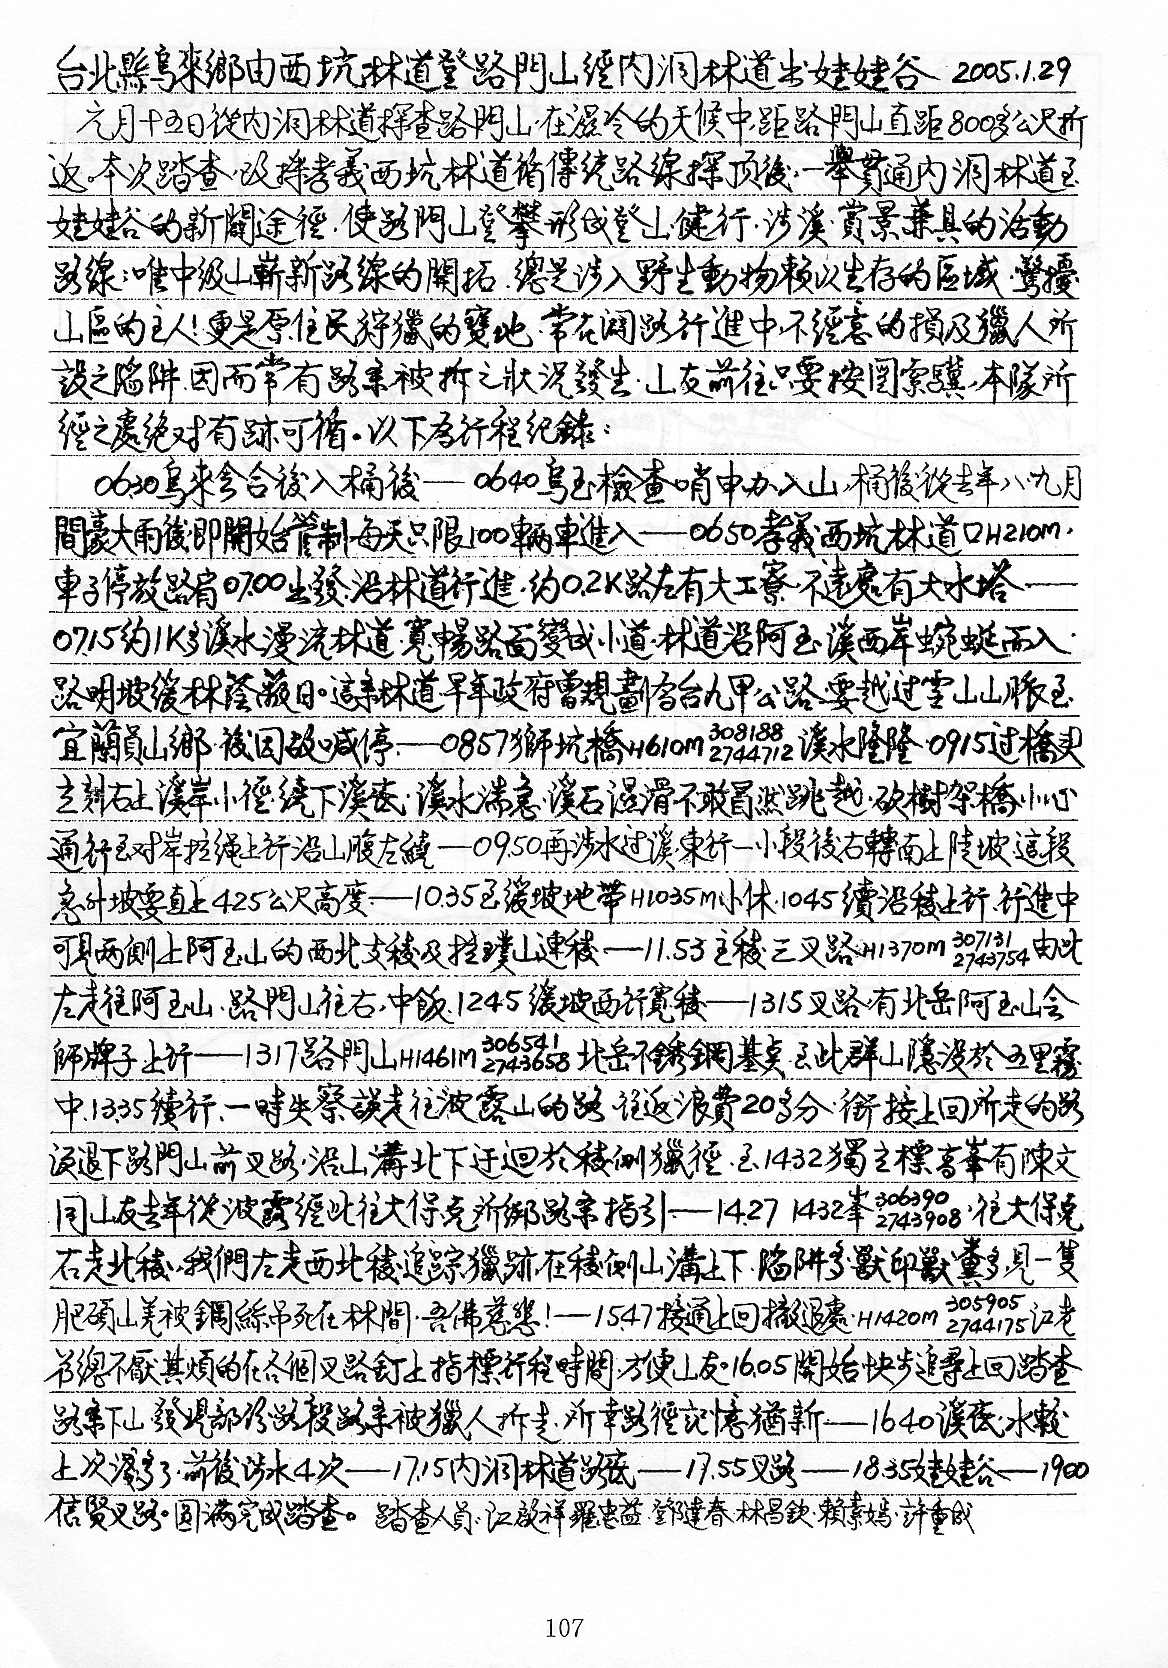 台北縣烏來鄉由西坑林道登路門山經內洞林道出娃娃谷 2005.1.29
元月十五日從內洞林道探查路門山,在濕冷的天候中,距路門山直距800多公尺折
返。本次踏查,改採孝義西坑林道循傳統路線探頂後,一舉貫通內洞林道至
娃娃谷的新闢途徑,使路門山登攀形成登山健行,涉溪,賞景兼具的活動
路線;唯中級山嶄新路線的開拓,總是涉入野生動物賴以生存的區域,驚擾
山區的主人!更是原住民狩獵的寶地,常在闢路行進中,不經意的損及獵人所
設之陷阱,因而常有路条被拆之狀況發生,山友前往只要按圖索驥,本隊所
經之處絕对有跡可循。以下為行程紀錄:
0630烏來會合後入桶後—0640烏玉檢查哨申办入山,桶後從去年八.九月
間豪大雨後,即開始管制,每天只限100輛車進入—0650孝義西坑林道口H210m,
車子停放路肩07.00出發,沿林道行進,約0.2K路左有大工寮,不遠處有大水塔—
07.15約1K多溪水漫流林道,寬暢路面變成小道,林道沿阿玉溪西岸蜿蜒而入,
路明坡緩林蔭蔽日。這条林道早年政府曾規劃為台九甲公路,要越过雪山山脈至
宜蘭員山鄉,後因故喊停,—0857獅坑橋H610m 308188 2744712 溪水隆隆,0915过橋頭
立刻右上溪岸小徑,繞下溪底,溪水湍急,溪石濕滑不敢冒然跳越,砍樹架橋小心
通行至对岸拉繩上行沿山腹左繞—09.50再涉水过溪東行一小段後右轉南上陡坡,這段
急升坡要直上425公尺高度,—10.35至緩坡地帶H1035m小休,1045續沿稜上行,行進中
可見兩側上阿玉山的西北支稜及拉璞山連稜—11.53主稜三叉路H1370m 307131 2743754 由此
左走往阿玉山,路門山往右,中飯,1245緩坡西行寬稜—1315叉路,有北岳阿玉山會
師牌子上行—1317路門山H1461m 306541 2743658 北岳不銹鋼基点,至此群山隱沒於五里霧
中,1335續行,一時失察誤走往波露山的路,往返浪費20多分,銜接上回所走的路
須退下路門山前叉路,沿山溝北下迂迴於稜側獵徑,至1432獨立標高峯有陳文
同山友去年從波露經此往大保克所綁路条指引,—14.27 1432峯 306390 2743908,往大保克
右走北稜,我們左走西北稜追踪獵跡,在稜側山溝上下,陷阱多,獸印獸糞多,見一隻
肥碩山羌被鋼絲吊死在林間,吾佛慈悲!—15.47接通上回撤退處,H1420m 305905 2744175 江老
爷總不厭其煩的在各個叉路釘上指標行程時間,方便山友。16.05開始快步追尋上回踏查
路条下山,發現部份路段路条被獵人拆走,所幸路徑記憶猶新—1640溪底,水較
上次漲多了,前後涉水4次—17.15內洞林道路底—17.55叉路—1835娃娃谷—1900
信賢叉路。圓滿完成踏查。 踏查人員:江啟祥.羅忠益.鄧逢春.林昌欽.賴素嫣.許重成
107